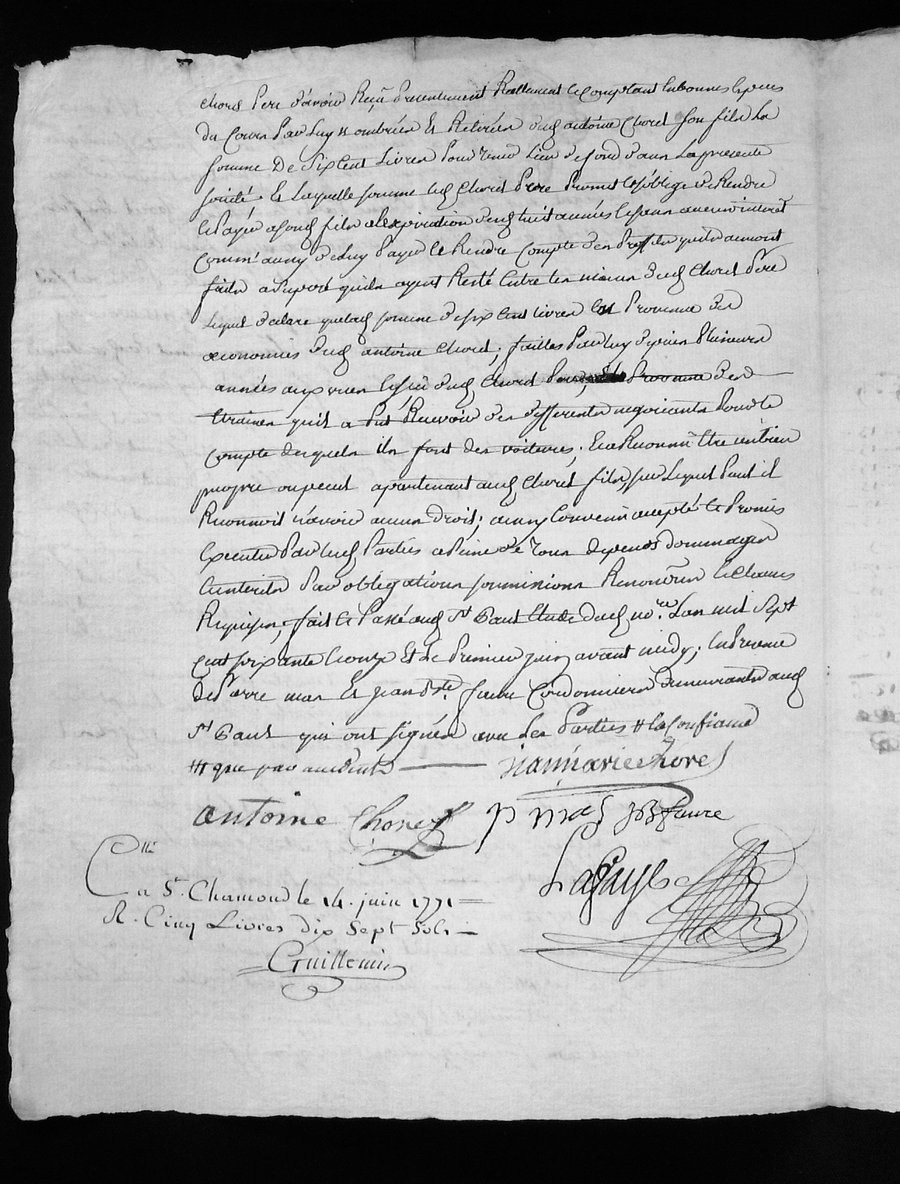 Choret Pere d'avoir Reçu Presentement Reallement et Comptant en bonnes especes
du Cours Par luy Nombréés Et Retirées dud. antoine Choret son fils La
somme De six Cent Livres Pour tenir Lieu de fond dans La presente
société. Et Laquelle somme led. Choret Pere Promet et s'oblige de Rendre
et Payer a sond. fils a l'expiration desd. huit années et sans aucun interet
Comm' aussy de luy Payer et Rendre Compte des Profits quils auront
faits a suposé quils ayent Resté Entre les mains dud. Choret Pere
Lequel declare que lad. somme de six Cent livres Est Provenue des
œconomies dud. antoine Choret; faittes Par luy depuis Plusieurs
années du dud. Choret Pere, Provenue des
Etrennes quil a Put Recevoir des differents negotiants Pour le
Compte desquels ils font des voitures; Et a Reconnu Etre un bien
propre ou pecul apartenant aud. Choret fils, sur Lequel Pere il
Reconnoit n'avoir aucun droit; ainsy Convenu accepté et Promis
Executer Par lesd. Parties a Peine de Tous depends dommages
Et interets Par obligations soumissions Renoontions et Clauses
Requises, fait et Passé aud. St. Paul Etude dud. nore. L'an mil sept
Cent soixante et onze Et Le Premier juin avant midy; En Presence
de pierre mas Et jean Bte. faure Cordonniers demeurants aud.
St. Paul qui ont signés avec Les Parties
jean marie Choret
antoine Choret P mas J B faure
Lafaye
Clle.
a St. Chamond le 14 juin 1771
R. Cinq Livres dix Sept Sols
Guillemin